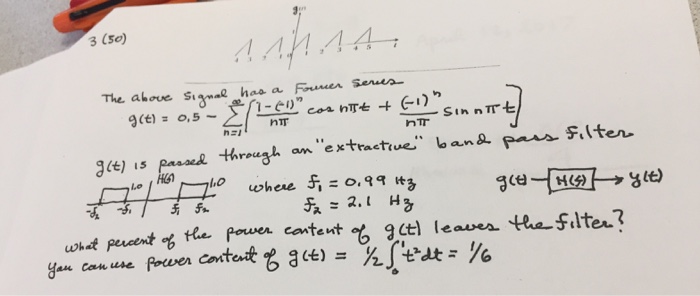 3 (50)
g(t)
The above signal has a Fourier Series
g(t) = 0,5 - ∑_{n=1}^{∞} [ (1-(-1)^n)/(nπ) cos nπt + (-1)^n/(nπ) sin nπt ]
g(t) is passed through an "extractive" band pass filter
H(f) 1.0 1.0 where f₁ = 0,99 Hz g(t) H(f) y(t)
-f₂ -f₁ f₁ f₂ f₂ = 2.1 Hz
what percent of the power content of g(t) leaves the filter?
You can use power content of g(t) = 1/2 ∫₀¹ t² dt = 1/6